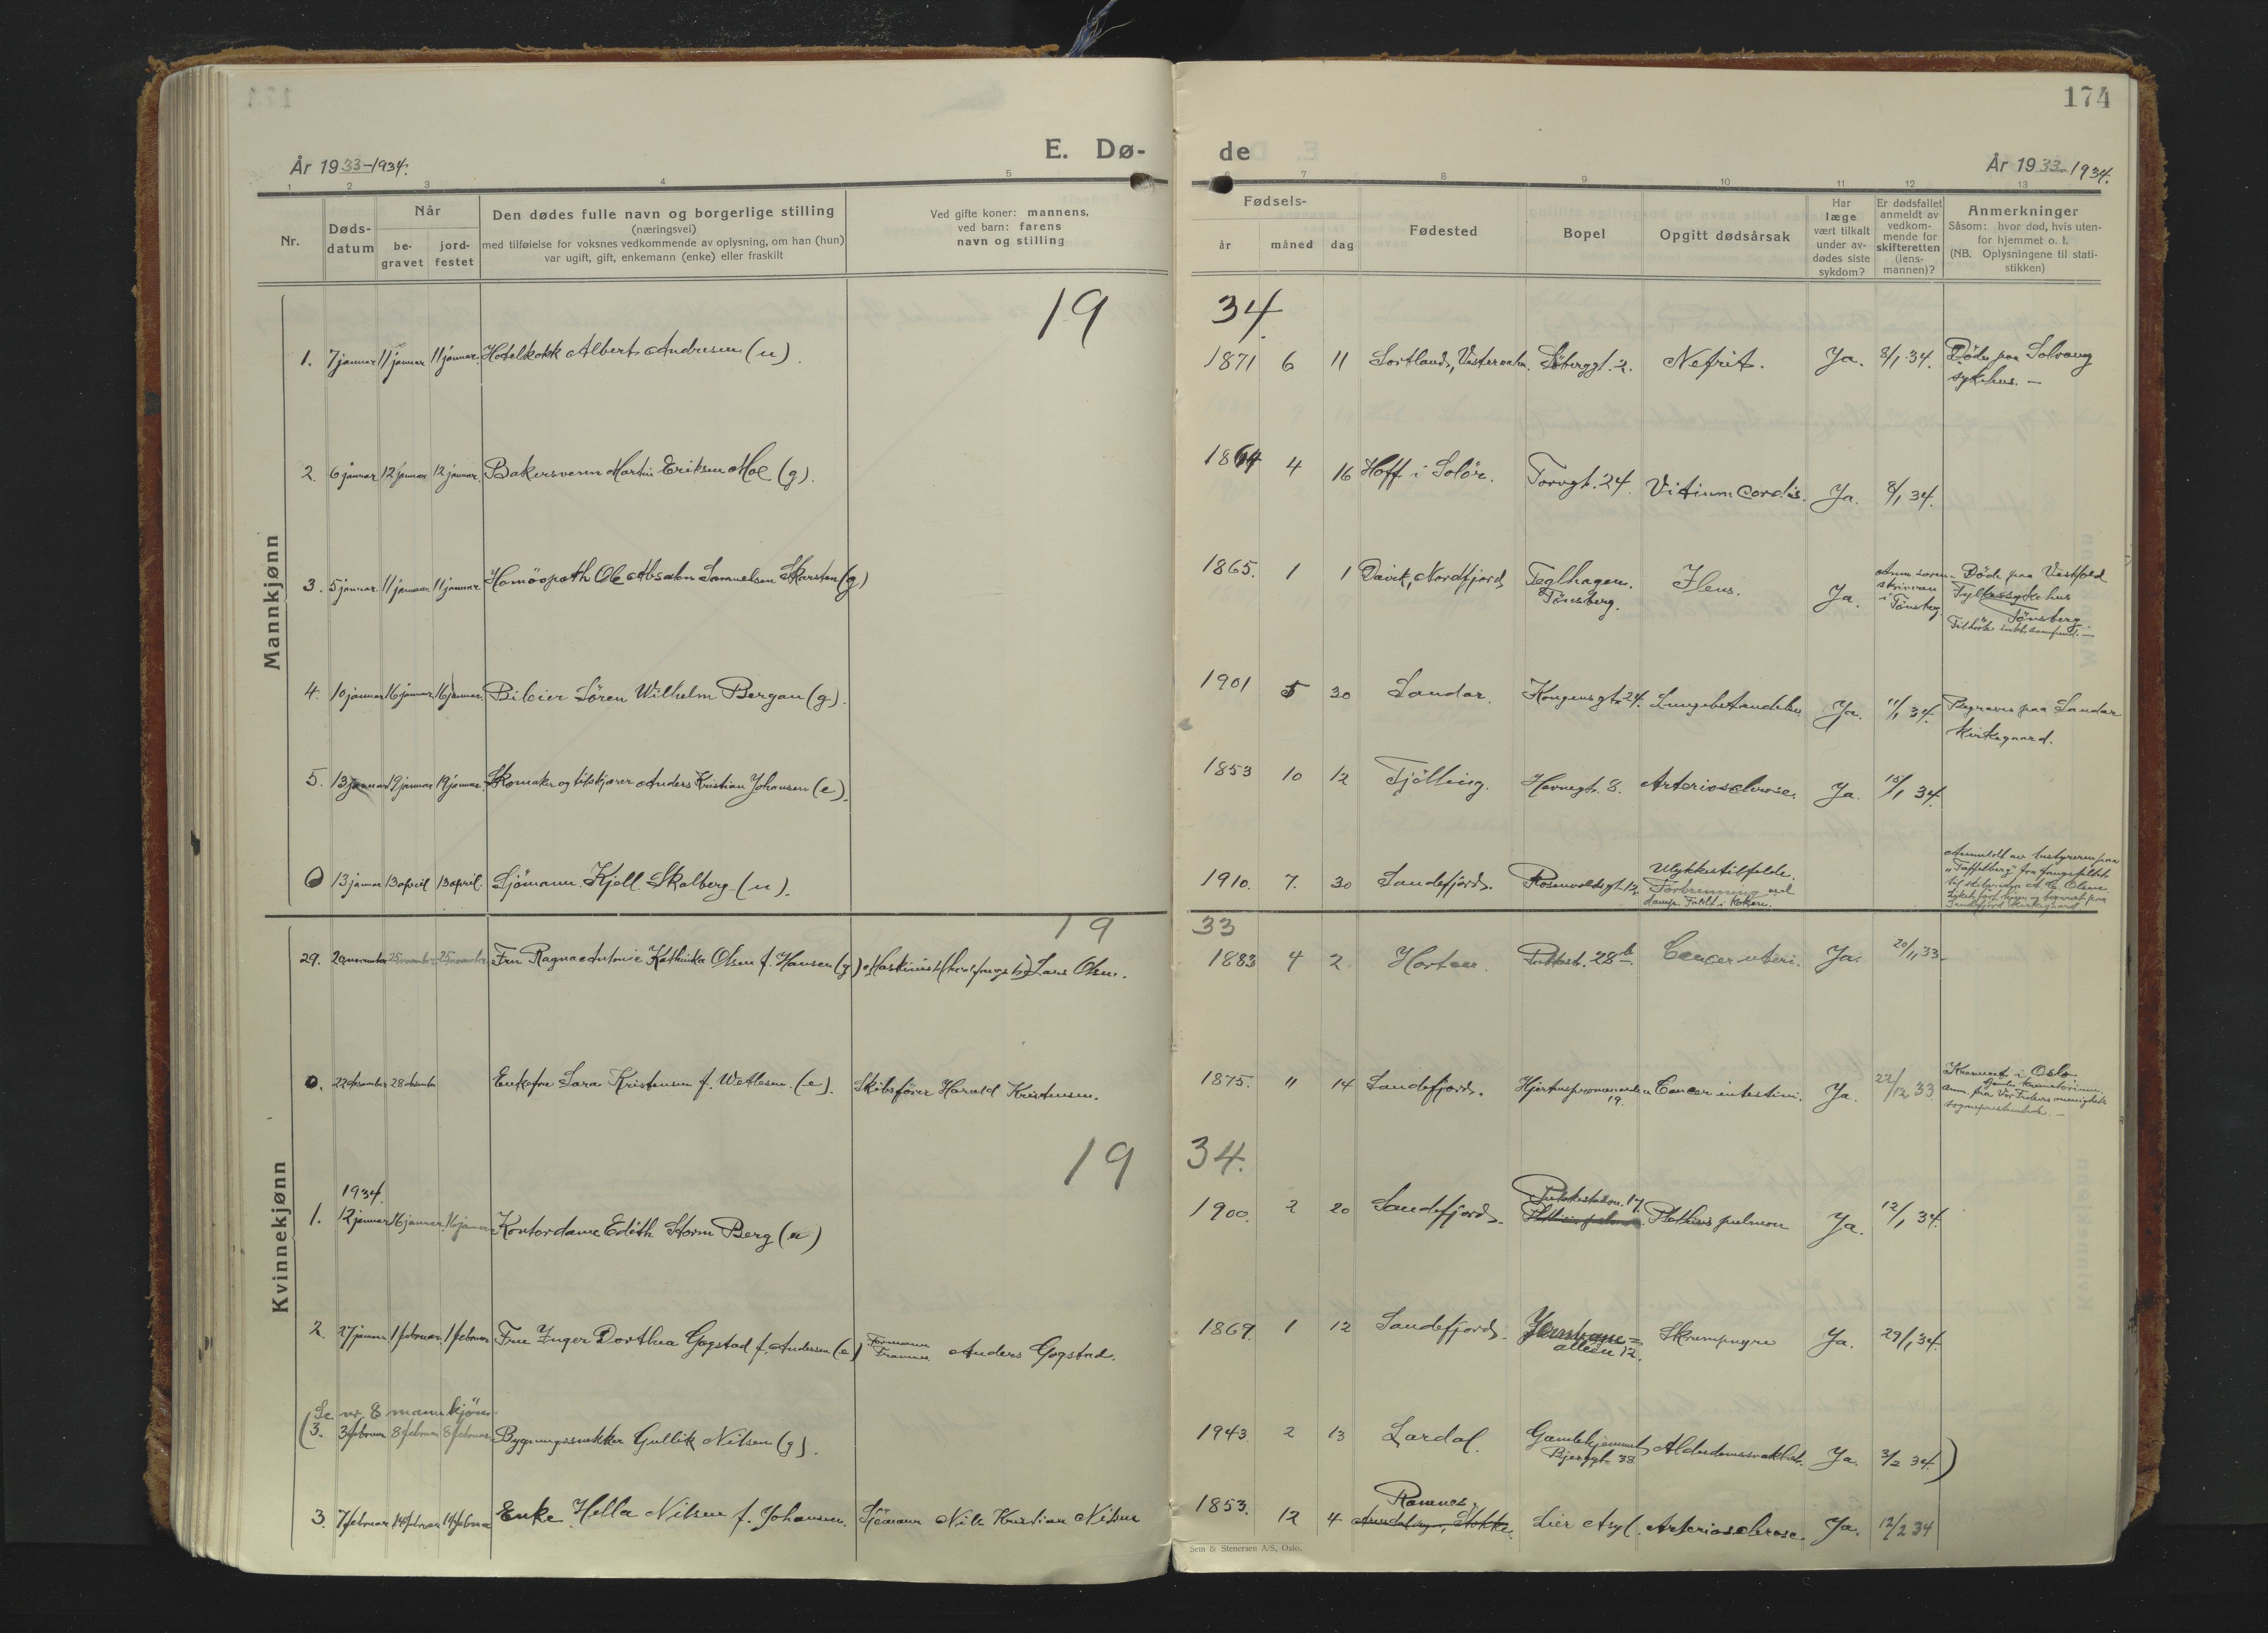 174
E. Dø- de
År 1933-1934.
År 1933-1934.
1 2 3 4 5 6 7 8 9 10 11 12 13
Nr.
Døds-
datum
Når
be-
gravet
jord-
festet
Den dødes fulle navn og borgerlige stilling
(næringsvei)
med tilføielse for voksnes vedkommende av oplysning, om han (hun)
var ugift, gift, enkemann (enke) eller fraskilt
Ved gifte koner: mannens,
ved barn: farens
navn og stilling
Fødsels-
år måned dag
Fødested
Bopel
Opgitt dødsårsak
Har
læge
vært tilkalt
under av-
dødes siste
sykdom?
Er dødsfallet
anmeldt av
vedkom-
mende for
skifteretten
(lens-
mannen)?
Anmerkninger
Såsom: hvor død, hvis uten-
for hjemmet o. l.
(NB. Oplysningene til stati-
stikken)
Mannkjønn
19 34.
1. 7 januar 11 januar 11 januar. Hotelkokk Albert Andresen (u). 1871 6 11 Sortland, Vesteraalen. Søberggt. 2. Nefrit. Ja. 8/1 34. Døde paa Solvang
sykehus. —
2. 6 januar 12 januar 12 januar. Bakersvenn Martin Eriksen Moe (g). 4 16 Hoff i Solör. Torvgt. 24. Vitium Cordis. Ja. 8/1 34.
3. 5 januar 11 januar 11 januar Homöopath Ole Absalon Samuelsen Skarsten (g) 1865. 1 1 Davik, Nordfjord Teglhagen.
Tønsberg. Ileus. Ja. Anm. soren-
skriveren
i Tønsberg. Døde paa Vestfold
Fylkessykehus
Tønsberg.
4. 10 januar 16 januar 16 januar. Bileier Sören Wilhelm Bergan (g). 1901 5 30 Sandar. Kongensgt. 24. Lungebetændelse Ja. 11/1 34. Begraves paa Sandar
Kirkegaard.
5. 13 januar 19 januar 19 januar. Skomaker og Anders Kristian Johansen (e). 1853 10 12 Tjölling. Havnegt. 8. Arteriosclerose. Ja. 15/1 34.
0 13 januar 13 april 13 april. Sjömann Kjell Skalberg (u). 1910. 7. 30 Sandefjord. Rosenvoldsgt. 12. Ulykkestilfelde.
Forbrenning ved
damp. Faldt i kokeri.
Anmeldt av bestyreren paa
"Taffelberg" fra fangstfeltet
Sandefjord Kirkegaard
Kvinnekjønn
19 33
29. 20 november 25 november 25 november Fru Ragna Antonie Kathinka Olsen f. Hansen (g) Maskinist Lars Olsen. 1883 4 2 Horten. 28 b. Cancer uteri. Ja. 20/11 33.
0. 22 desember 28 desember Enkefru Sara Kristensen f. Wetlesen. (e). Skibsfører Harald Kristensen. 1875. 11 14 Sandefjord. Hjertnespromenaden
19. Cancer intestini. Ja. 22/12 33 Kremert i Oslo
Gamle krematorium.
Anm. fra Vår Frelsers menighets
sogneprestembede. —
19 34.
1934.
1. 12 januar 16 januar. 16 januar Kontordame Edith Storm Berg (u) 1900. 2 20 Sandefjord. Phthisis pulmon Ja. 12/1 34.
2. 27 januar 1 februar 1 februar Fru Inger Dorthea Gogstad f. Andersen (e) Anders Gogstad. 1869. 1 12 Sandefjord. alleen 12. Skrumpnyre Ja. 29/1 34.
Se nr. 8 mannkjön.
(3. 3 februar 8 februar 8 februar. Bygningssnekker Gullik Nilsen (g). 1943. 2 13 Lardal. Gamlehjemmet
Bjerggt. 38 Alderdomssvakhet. Ja. 3/2 34.)
3. 7 februar 14 februar 14 februar Enke Hella Nilsen f. Johansen. Sjömann Nils Kristian Nilsen 1853. 12 4 Ramnes.
Stokke. Lier Asyl. Arteriosclerose. Ja. 12/2 34
Sem & Stenersen A/S, Oslo.